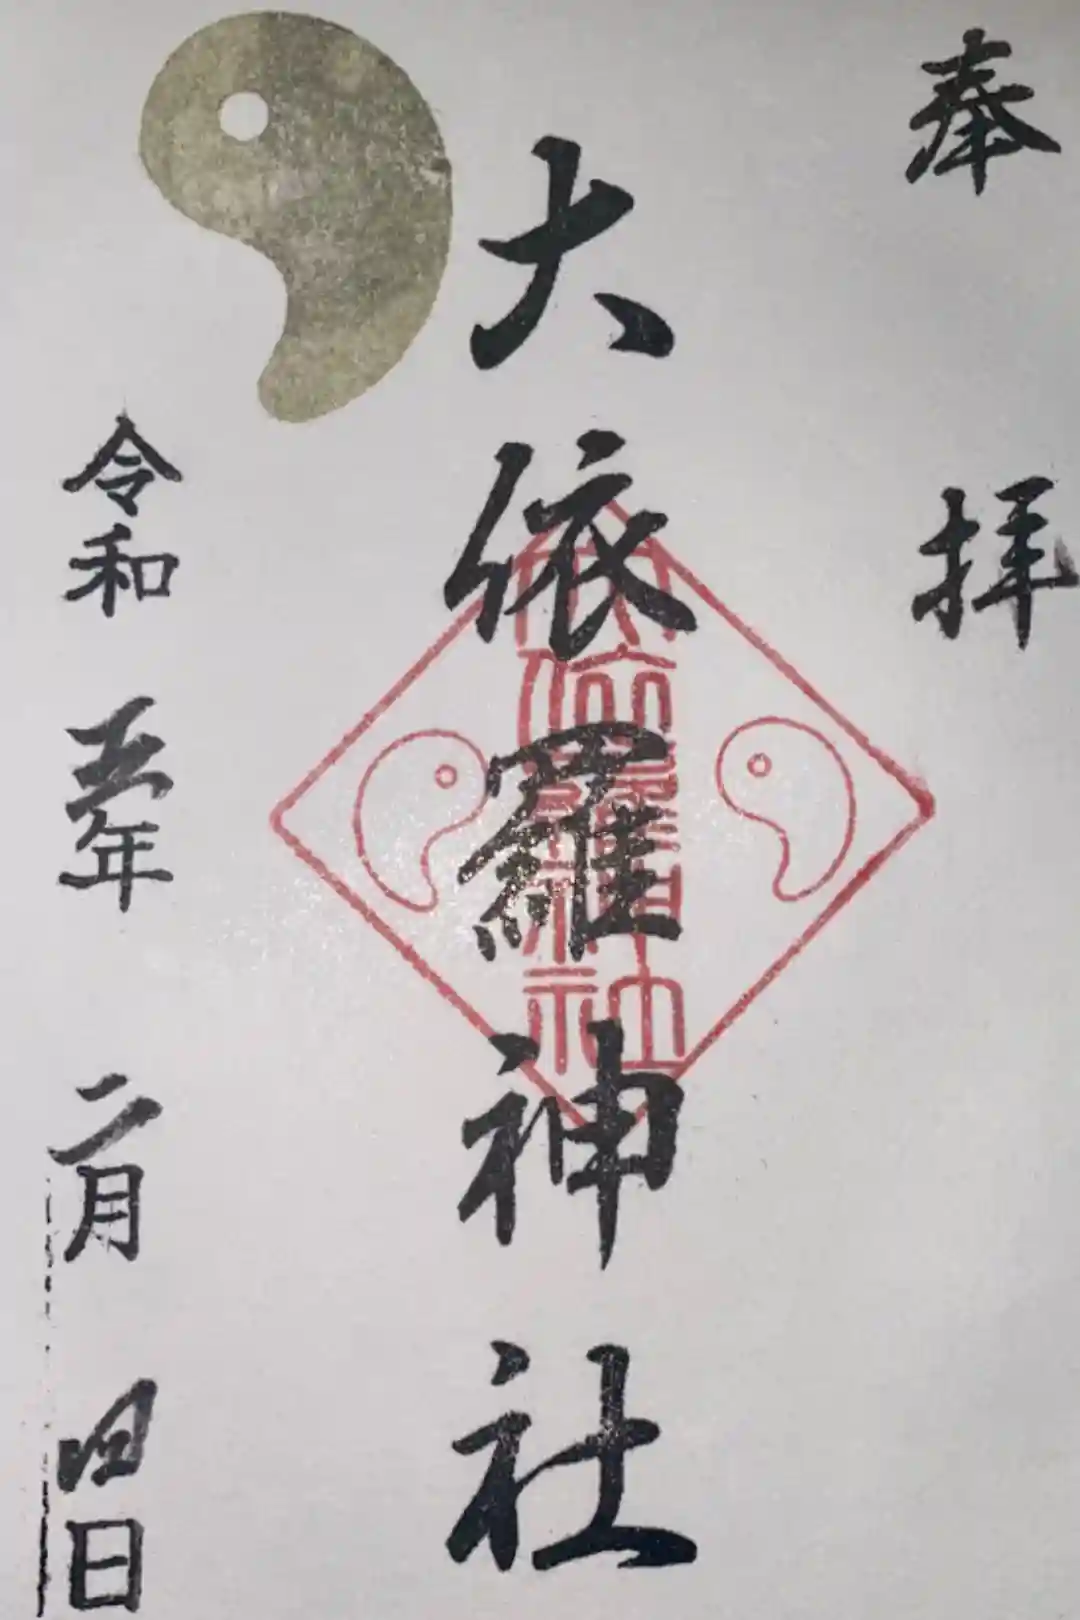 奉拝
大依羅神社
令和五年二月四日
大依羅神社